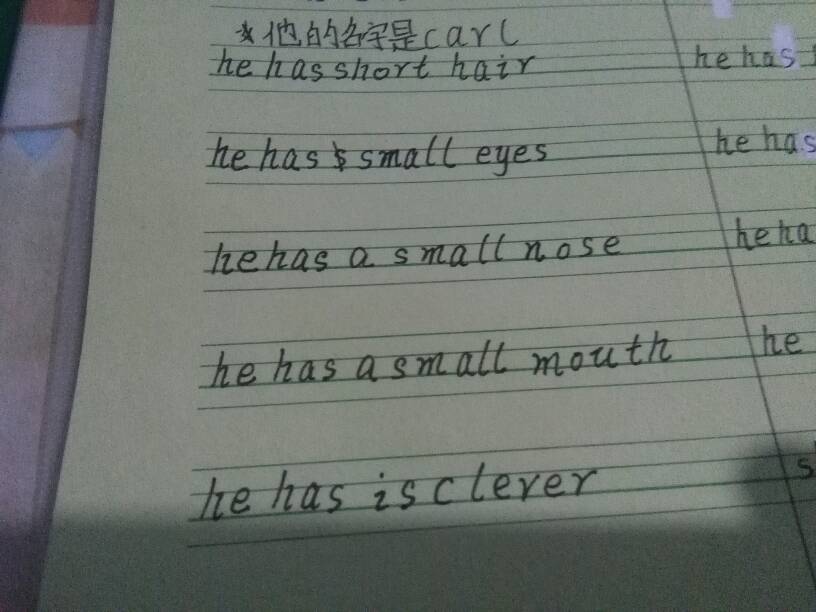 *他的名字是carl
he has short hair
he has
he has small eyes
he has
he has a small nose
he ha
he has a small mouth
he
he has is clever
s